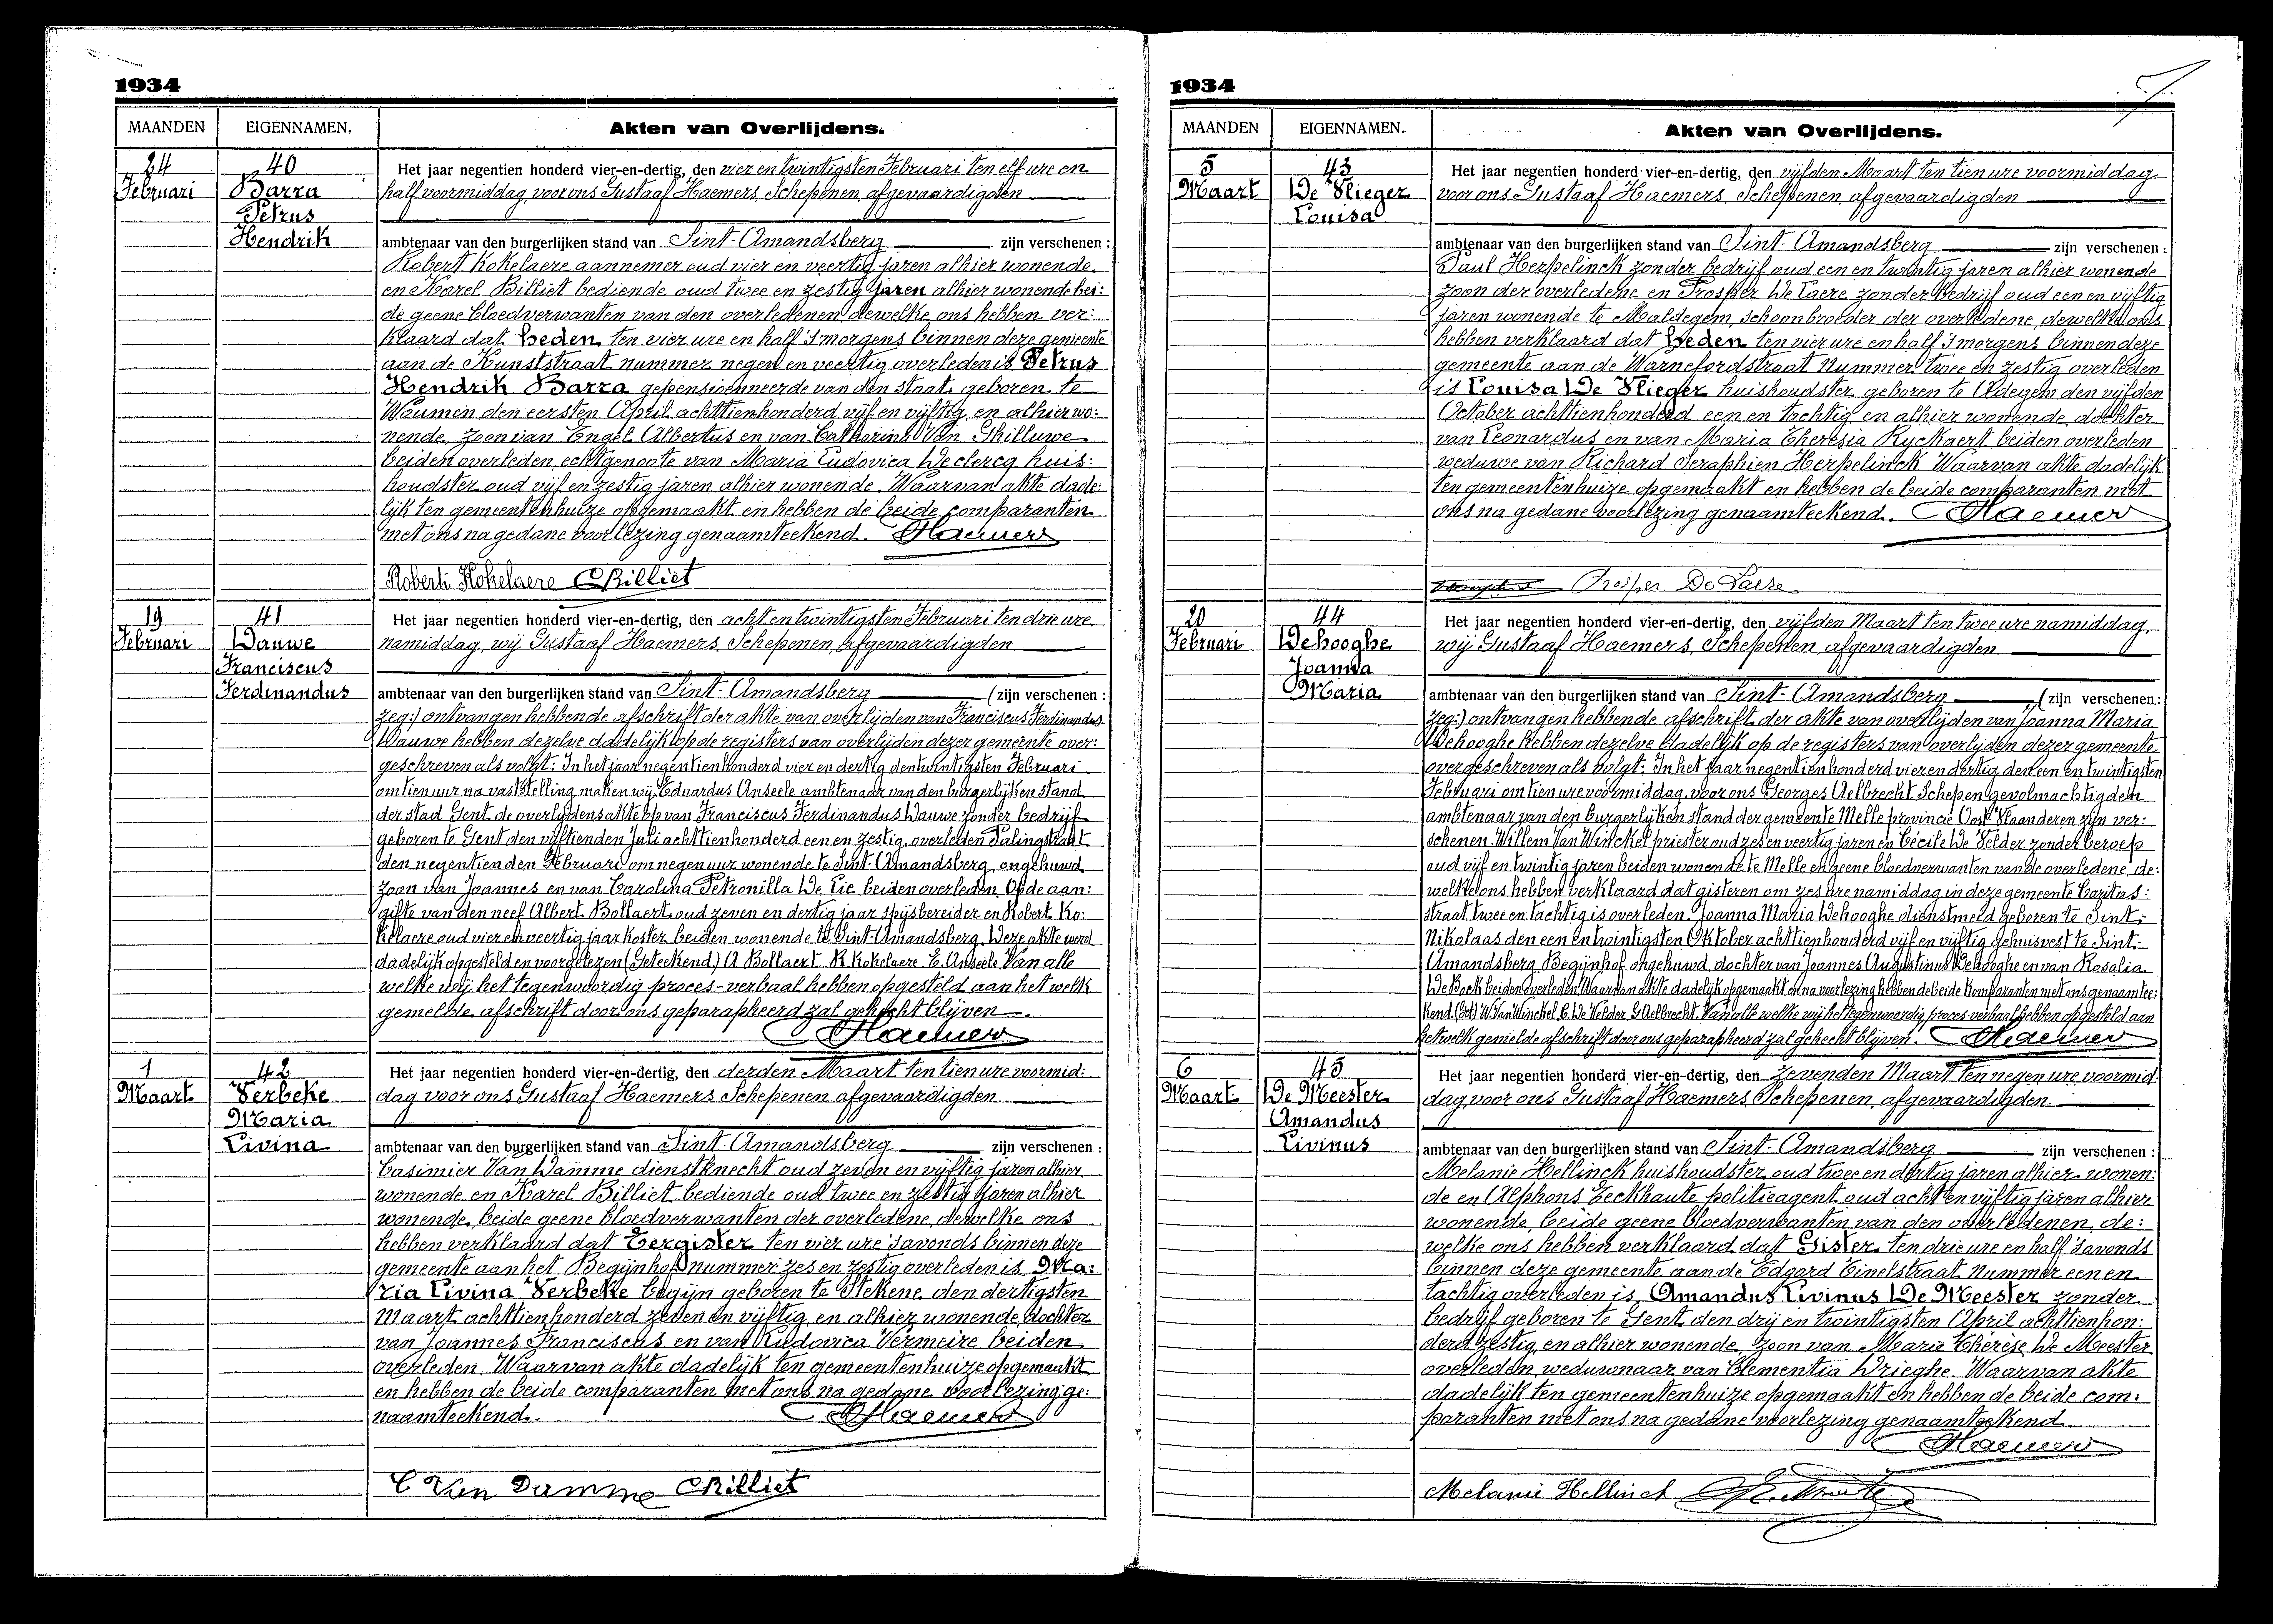 1934
MAANDEN
EIGENNAMEN.
Akten van Overlijdens.
24
Februari
40
Barra
Petrus
Hendrik
Het jaar negentien honderd vier-en-dertig, den vier en twintigsten Februari ten elf ure en
half voormiddag, voor ons Gustaaf Haemers, Schepenen, afgevaardigden
ambtenaar van den burgerlijken stand van Sint-Amandsberg zijn verschenen :
Robert Kokelaere aannemer oud vier en veertig jaren alhier wonende
en Karel Billiet bediende oud twee en zestig jaren alhier wonende bei:
de geene bloedverwanten van den overledenen, dewelke ons hebben ver:
klaard dat heden ten vier ure en half 's morgens binnen deze gemeente
aan de Kunststraat nummer negen en veertig overleden is Petrus
Hendrik Barra gepensionneerde van den staat, geboren te
Woumen den eersten April achttienhonderd vijf en vijftig, en alhier wo:
nende, zoon van Engel Albertus en van Catharina Van Ghilluwe
beiden overleden, echtgenoote van Maria Ludovica Declercq huis:
houdster oud vijf en zestig jaren alhier wonende. Waarvan akte dade:
lijk ten gemeentenhuize opgemaakt en hebben de beide comparanten
met ons na gedane voorlezing genaamteekend. Haemers
Robert Kokelaere CBilliet
19
Februari
41
Dauwe
Franciscus
Ferdinandus
Het jaar negentien honderd vier-en-dertig, den acht en twintigsten Februari ten drie ure
namiddag, wij Gustaaf Haemers, Schepenen, afgevaardigden
ambtenaar van den burgerlijken stand van Sint-Amandsberg (zijn verschenen :
zeg:) ontvangen hebbende afschrift der akte van overlijden van Franciscus Ferdinandus
Dauwe hebben dezelve dadelijk op de registers van overlijden dezer gemeente over:
geschreven als volgt: In het jaar negentienhonderd vier en dertig den twintigsten Februari
om tien uur na vaststelling maken wij Eduardus Anseele ambtenaar van den burgerlijken stand
der stad Gent de overlijdensakte op van Franciscus Ferdinandus Dauwe zonder bedrijf
geboren te Gent den vijftienden Juli achttienhonderd een en zestig, overleden Palingstraat
den negentienden Februari om negen uur wonende te Sint-Amandsberg, ongehuwd
zoon van Joannes en van Carolina Petronilla De Lie beiden overleden. Op de aan:
gifte van den neef Albert Bollaert oud zeven en dertig jaar spijsbereider en Robert Ko:
kelaere oud vier en veertig jaar koster beiden wonende te Sint-Amandsberg. Deze akte werd
dadelijk opgesteld en voorgelezen (Geteekend) A Bollaert. R. Kokelaere. E. Anseele. Van alle
welke wij het tegenwoordig proces-verbaal hebben opgesteld aan het welk
gemelde afschrift door ons geparapheerd zal gehecht blijven.
Haemers
1
Maart
42
Verbeke
Maria
Livina
Het jaar negentien honderd vier-en-dertig, den derden Maart ten tien ure voormid:
dag voor ons Gustaaf Haemers Schepenen afgevaardigden
ambtenaar van den burgerlijken stand van Sint-Amandsberg zijn verschenen :
Casimier Van Damme dienstknecht oud zeven en vijftig jaren alhier
wonende en Karel Billiet bediende oud twee en zestig jaren alhier
wonende, beide geene bloedverwanten der overledene, dewelke ons
hebben verklaard dat Eergister ten vier ure 's avonds binnen deze
gemeente aan het Begijnhof nummer zes en zestig overleden is Ma:
ria Livina Verbeke begijn geboren te Stekene den dertigsten
Maart achttienhonderd zeven en vijftig, en alhier wonende, dochter
van Joannes Franciscus en van Ludovica Vermeire beiden
overleden. Waarvan akte dadelijk ten gemeentenhuize opgemaakt
en hebben de beide comparanten met ons na gedane voorlezing ge:
naamteekend. Haemers
C Van Damme CBilliet
1934
MAANDEN
EIGENNAMEN.
Akten van Overlijdens.
5
Maart
43
De Vlieger
Louisa
Het jaar negentien honderd vier-en-dertig, den vijfden Maart ten tien ure voormiddag
voor ons Gustaaf Haemers, Schepenen, afgevaardigden
ambtenaar van den burgerlijken stand van Sint-Amandsberg zijn verschenen :
Paul Herpelinck zonder bedrijf oud een en twintig jaren alhier wonende
zoon der overledene en Prosper De Laere zonder bedrijf oud een en vijftig
jaren wonende te Maldegem, schoonbroeder der overledene, dewelke ons
hebben verklaard dat heden ten vier ure en half 's morgens binnen deze
gemeente aan de Warnefordstraat nummer twee en zestig overleden
is Louisa De Vlieger huishoudster geboren te Adegem den vijfden
October achttienhonderd een en tachtig, en alhier wonende, dochter
van Leonardus en van Maria Theresia Ryckaert beiden overleden
weduwe van Richard Seraphien Herpelinck. Waarvan akte dadelijk
ten gemeentenhuize opgemaakt en hebben de beide comparanten met
ons na gedane voorlezing genaamteekend. Haemers
Prosper De Laere
20
Februari
44
Dehooghe
Joanna
Maria
Het jaar negentien honderd vier-en-dertig, den vijfden Maart ten twee ure namiddag,
wij Gustaaf Haemers, Schepenen, afgevaardigden
ambtenaar van den burgerlijken stand van Sint-Amandsberg (zijn verschenen:
zeg:) ontvangen hebbende afschrift der akte van overlijden van Joanna Maria
Dehooghe hebben dezelve dadelijk op de registers van overlijden dezer gemeente
overgeschreven als volgt: In het jaar negentienhonderd vier en dertig den een en twintigsten
Februari om tien ure voormiddag voor ons Georges Aelbrecht Schepen gevolmachtigden
ambtenaar van den burgerlijken stand der gemeente Melle provincie Oost Vlaanderen zijn ver:
schenen. Willem Van Winckel priester oud zes en veertig jaren en Cécile De Velder zonder beroep
oud vijf en twintig jaren beiden wonende te Melle en geene bloedverwanten van de overledene, de:
welke ons hebben verklaard dat gisteren om zes ure namiddag in deze gemeente Caritas:
straat twee en tachtig is overleden Joanna Maria Dehooghe dienstmeid geboren te Sint:
Nikolaas den een en twintigsten Oktober achttienhonderd vijf en vijftig gehuisvest te Sint:
Amandsberg Begijnhof ongehuwd, dochter van Joannes Augustinus Dehooghe en van Rosalia
De Bock beiden overleden. Waarvan akte dadelijk opgemaakt en na voorlezing hebben de beide komparanten met ons genaamtee:
kend. (Get) W. Van Winckel. C. De Velder. G. Aelbrecht. Van alle welke wij het tegenwoordig proces-verbaal hebben opgesteld aan
hetwelk gemelde afschrift door ons geparapheerd zal gehecht blijven. Haemers
6
Maart
45
De Meester
Amandus
Livinus
Het jaar negentien honderd vier-en-dertig, den zevenden Maart ten negen ure voormid:
dag, voor ons Gustaaf Haemers, Schepenen, afgevaardigden
ambtenaar van den burgerlijken stand van Sint-Amandsberg zijn verschenen :
Melanie Hellinck huishoudster oud twee en dertig jaren alhier wonen:
de en Alphons Eeckhaute politieagent oud acht en vijftig jaren alhier
wonende, beide geene bloedverwanten van den overledenen, de:
welke ons hebben verklaard dat Gister ten drie ure en half 's avonds
binnen deze gemeente aan de Edgard Tinelstraat nummer een en
tachtig overleden is Amandus Livinus De Meester zonder
bedrijf geboren te Gent den drij en twintigsten April achttienhon:
derd zestig, en alhier wonende, zoon van Marie Thérèse De Meester
overleden, weduwnaar van Clementia Drieghe. Waarvan akte
dadelijk ten gemeentenhuize opgemaakt en hebben de beide com:
paranten met ons na gedane voorlezing genaamteekend.
Haemers
Melanie Hellinck